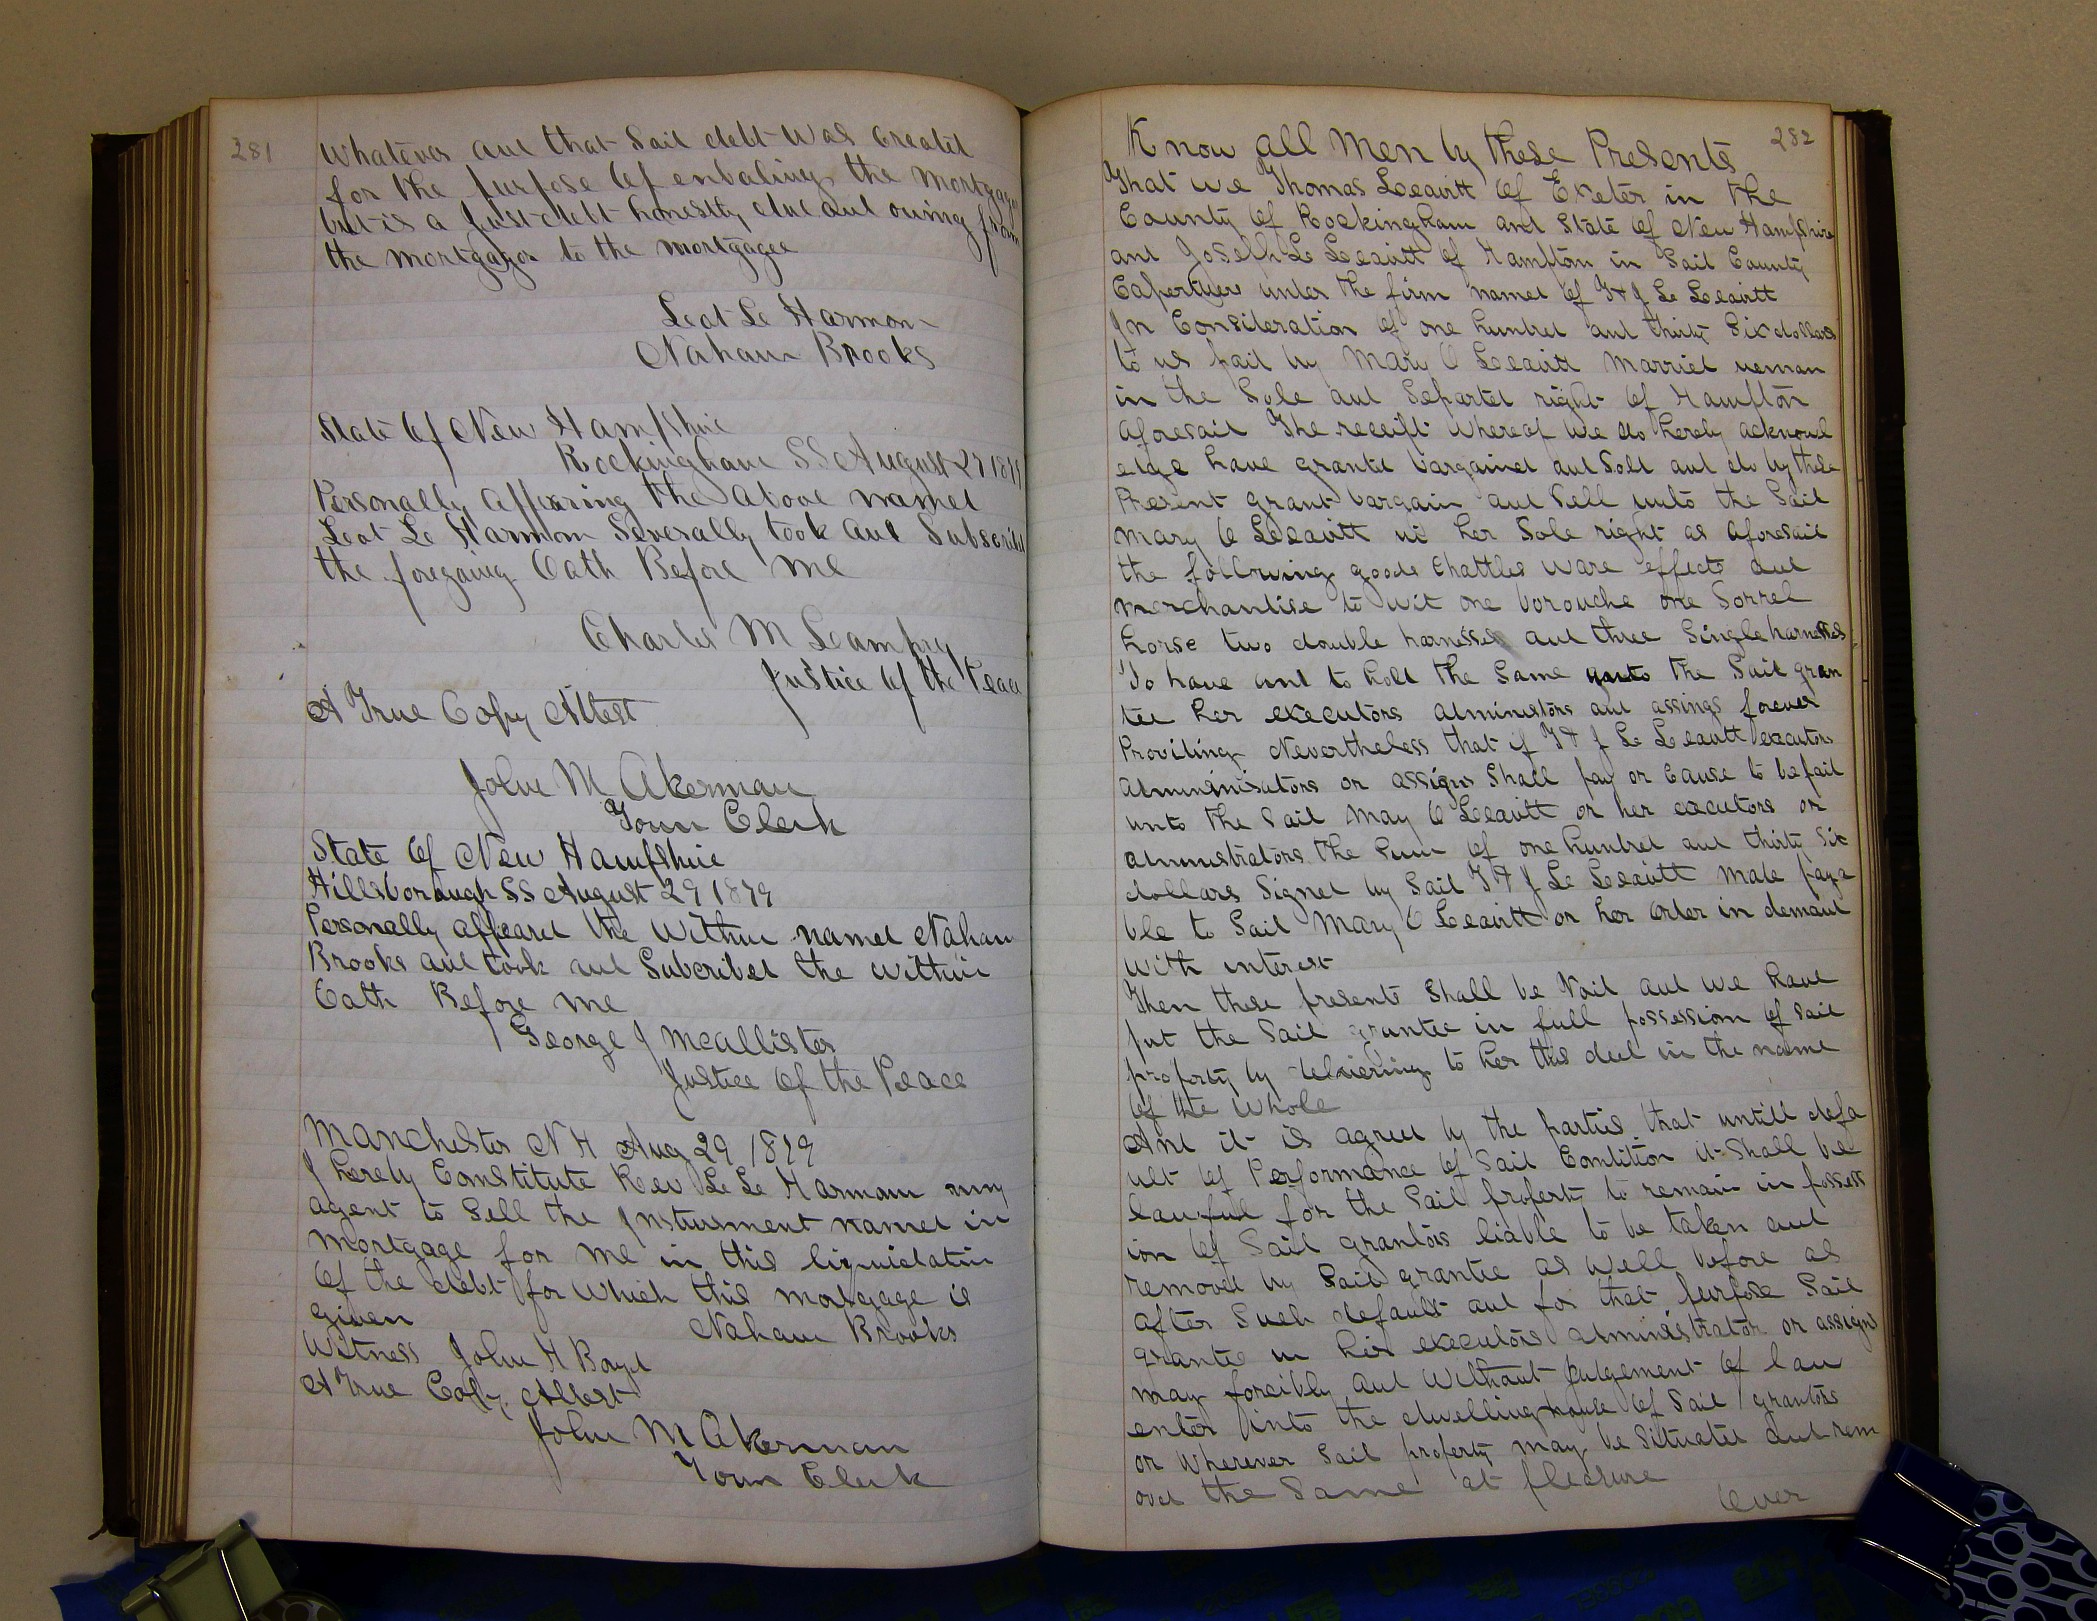 281
Whatever and that Said debt Was Created
for the purpose of enbaling the Mortgagor
but is a Just debt honestly due and owing from
the Mortgagor to the Mortgagee
Leot Le Harmon
Naham Brooks
State of New Hampshire
Rockingham SS August 27 1879
Personally Appearing the above named
Leot Le Harmon Severally took and Subscribed
the foregoing Oath Before me
Charles M Leamprey
Justice of the Peace
A True Copy Attest
John M Akerman
Town Clerk
State of New Hampshire
Hillsborough SS August 29 1879
Personally appeared the Within named Naham
Brooks and took and Subcribed the within
Oath Before me
George J McAllister
Justice of the Peace
Manchester N H Aug 29 1879
I hereby Constitute Rev Le Le Harmam my
agent to Sell the Instrument named in
Mortgage for me in this liquidation
of the debt for Which this mortgage is
given Naham Brooks
Witness John H Boyd
A True Copy Attest
John M Akerman
Town Clerk
282
Know all Men by these Presents
That we Thomas Leavitt of Exeter in the
County of Rockingham and State of New Hampshire
and Joseph Le Leavitt of Hampton in Said County
under the firm named of T & J Le Leavitt
In Consideration of one hundred and thirty Six dollars
to us paid by Mary O Leavitt Married woman
in the Sole and Seperted right of Hampton
aforesaid The receipt Whereof We do hereby acknowl
edge have granted bargained and Sold and do by these
Present grant bargain and Sell unto the Said
Mary O Leavitt in her Sole right as aforesaid
the following goods Chattles ware effects and
merchandise to wit one borouche one Sorrel
horse two double harnesses and three Single harnesses
To have and to hold the Same unto the Said gran
tee her executors administors and assings forever
Providing Nevertheless that if T & J Le Leavitt executors
Adminisutors or assigns Shall pay or Cause to be paid
unto the Said May O Leavitt or her executors or
administrators the Sum of one hundred and thirty Six
dollars Signed by Said T & J Le Leavitt Made paya
ble to Said Mary O Leavitt or her Order in demand
With interest
Then these presents Shall be Void and We have
put the Said grantee in full possession of Said
property by delivering to her this deed in the name
of the Whole
And it is agreed by the parties that untill defa
ult of Performance of Said Condition it Shall be
lawful for the Said property to remain in possess
ion of Said grantors liable to be taken and
removed by Said grantee as Well before as
after Such default and for that purpose Said
grantee in her executors administrator or assigns
may forcibly and Without Judgement of law
enter into the dwelling house of Said grantors
or Wherever Said property may be Situated and rem
oved the Same at pleasure
Over